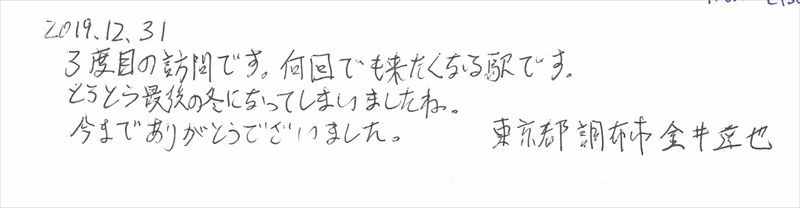 2019.12.31
3度目の訪問です。何回でも来たくなる駅です。
とうとう最後の冬になってしまいましたね。
今までありがとうございました。 東京都調布市 金井 也